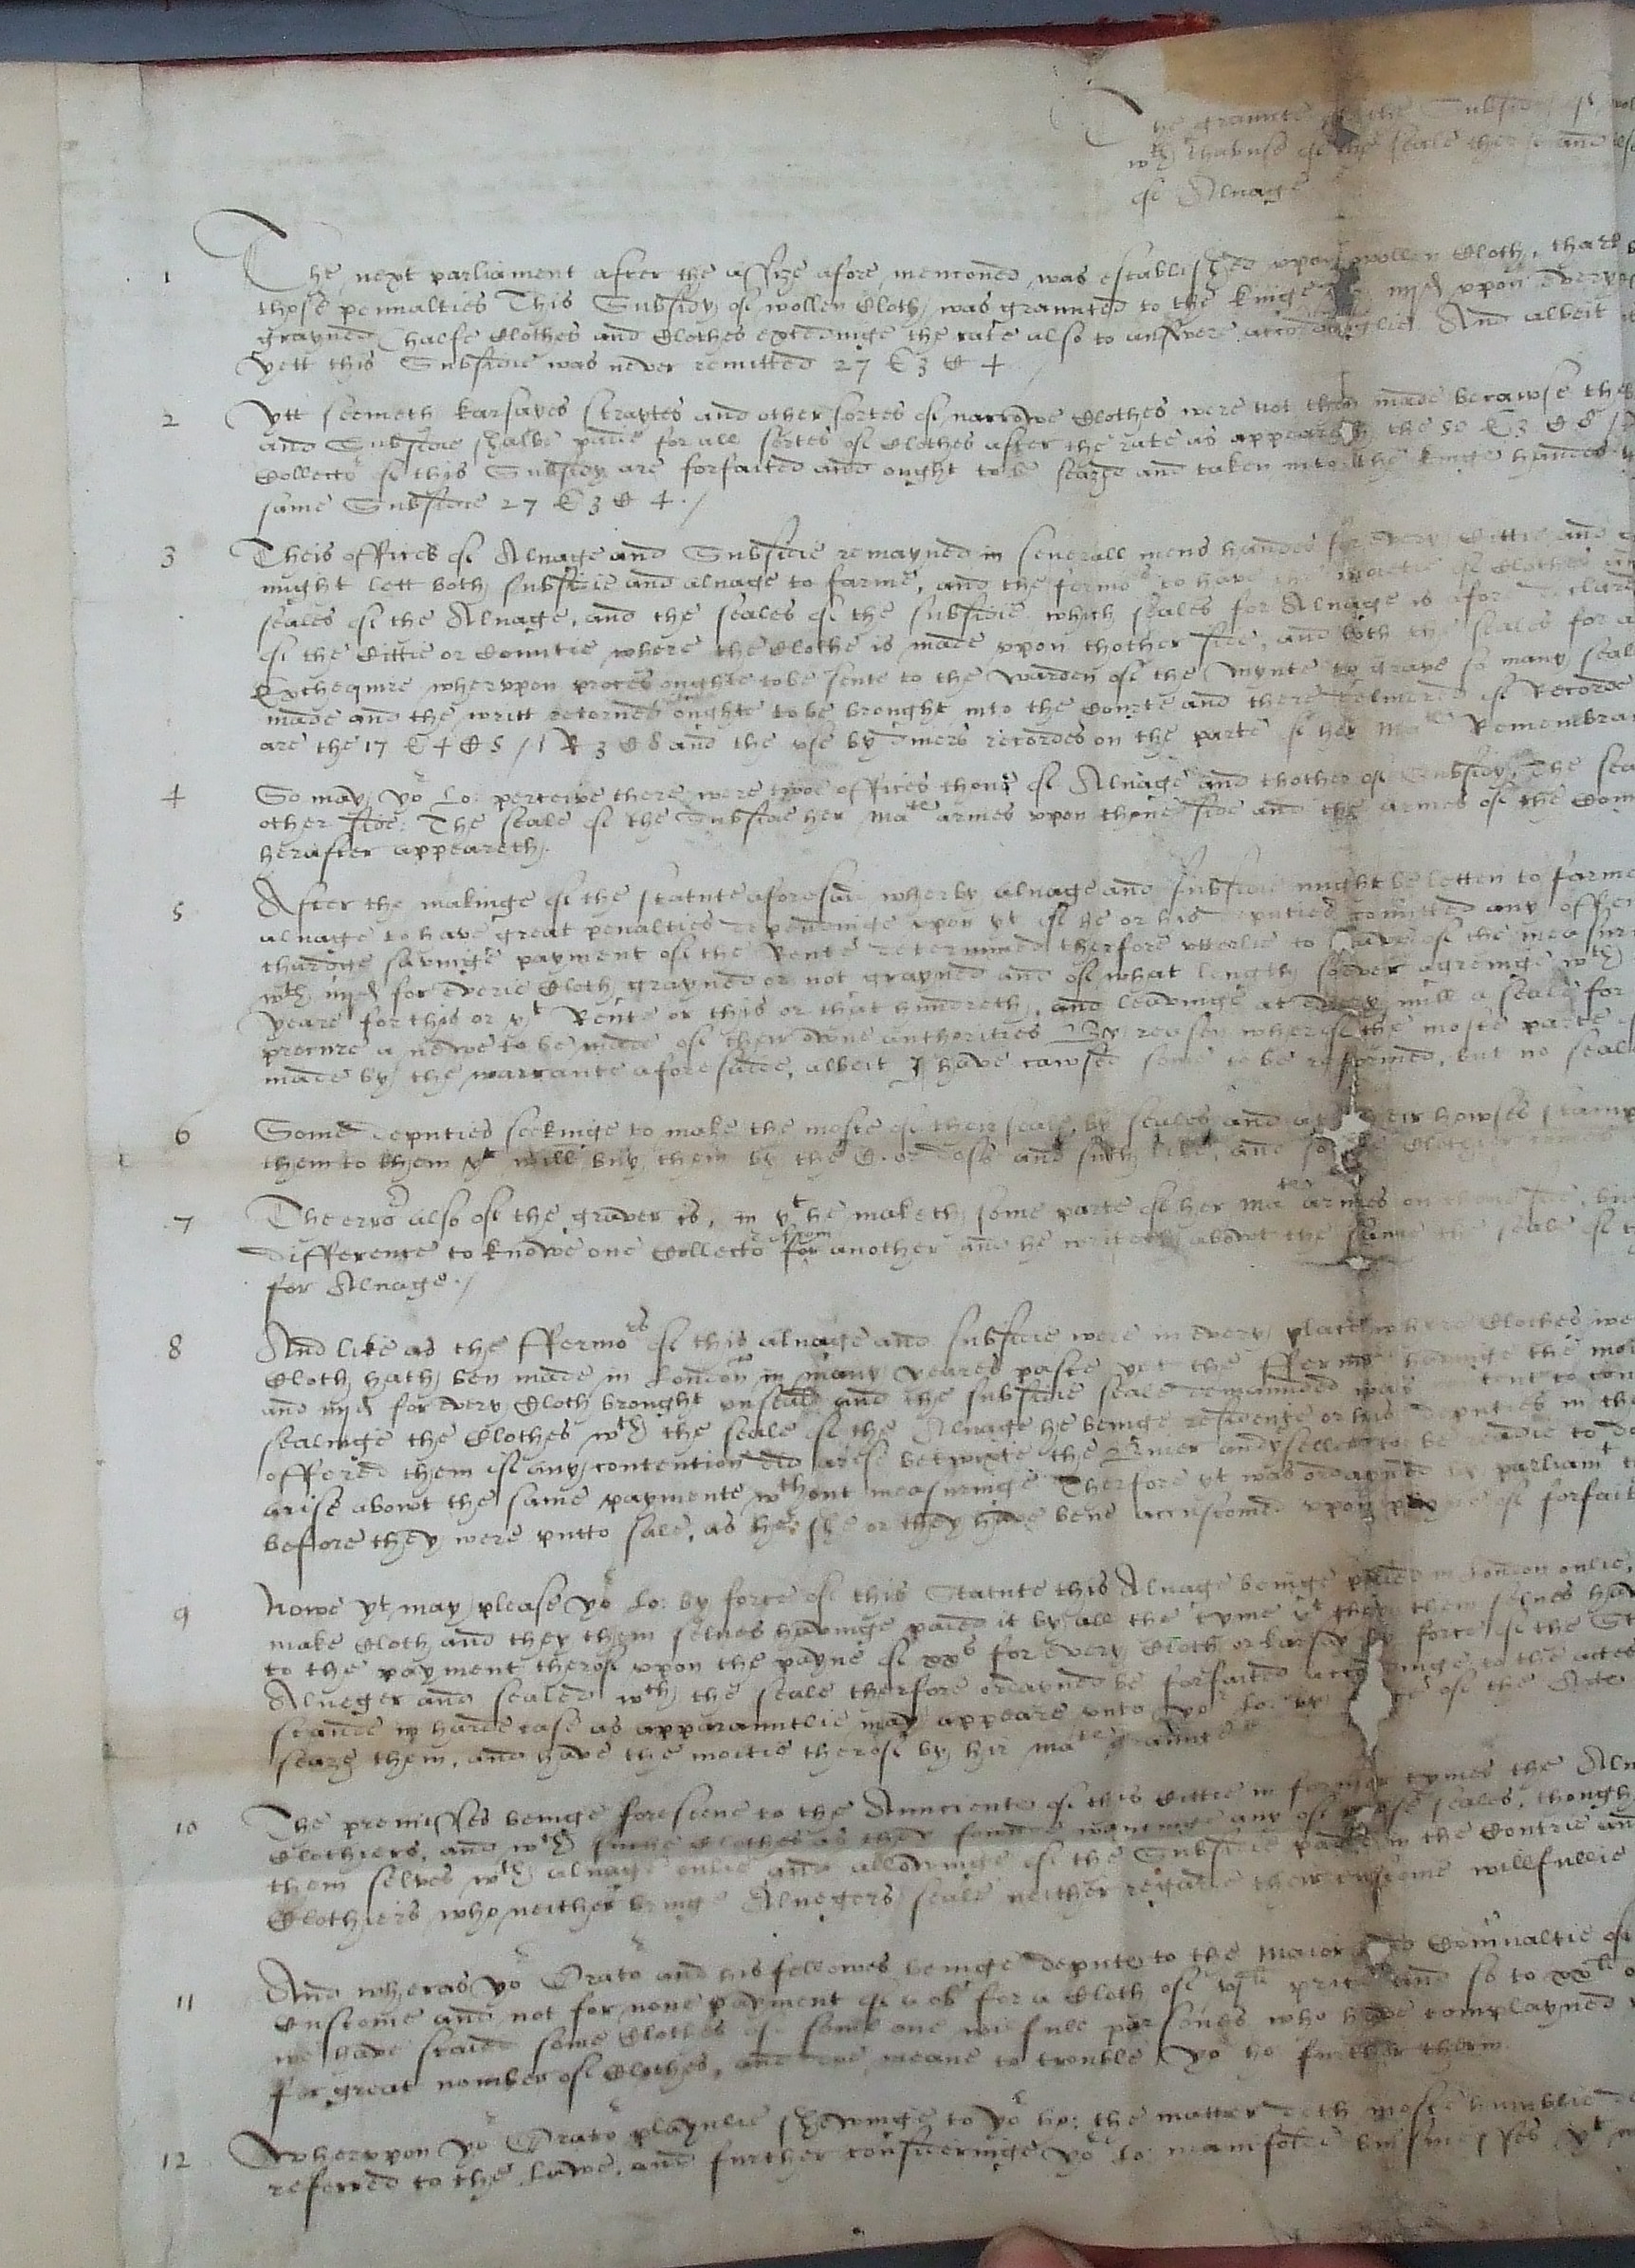 The graunte of the Subsidy of
wth thavuse of the seale therof and
of Alnage
1 The next parliament after the assize afore mencioned was established upon wollen Cloth, that
those pennalties This Subsidy of wollen Cloth was graunted to the kinge iiijd upon every
grayned halfe Clothes and Clothes exceedinge the rate also to answere accordinglie And albeit
yett this Subsidie was never remitted 27 E 3 C 4
2 Ytt seemeth karsayes straytes and other sortes of narrowe Clothes were not then made becawse the
and Subsidie shalbe paide for all sortes of Clothes after the rate as appeareth the 50 E 3 C 8
Collectors of this Subsidy are forfaited and ought to be seazed and taken into the kinge handes
same Subsidie 27 E 3 C 4 ./
3 Theis offices of Alnage and Subsidie remayned in severall mens handes for every Cittie and
might lett both subsidie and alnage to farme, and the fermors to have the moietie of Clothes
seales of the Alnage, and the seales of the subsidie which seales for Alnage is afore declared
of the Cittie or Countie where the Clothe is made upon thother side, and both the seales for
Exchequire wherupon proces oughte to be sente to the Warden of the Mynte to grave so many seales
made and the writt retorned oughte to be brought into the Courte and there delivered of Recorde
are the 17 E 4 C 5 / 1 R 3 C 8 and the use by divers recordes on the parte of her Mats Remembra
4 So may yor Lo: perceive there were twoe offices thone of Alnage and thother of Subsidy. The sea
other side: The seale of the Subsidie her Mats armes upon thone side and the armes of the Com
herafter appeareth.
5 After the makinge of the statute aforesaid wherby alnage and subsidie might be letten to farme
alnage to have great penalties dependinge upon yt if he or his deputies comitted any offen
chardge savinge payment of the Rente determined therfore utterlie to leave of the measuri
wth iiijd for everie Cloth grayned or not grayned and of what length soever agreinge wth
yeare for this or yt Rente or this or that hundreth, and leavinge at every mill a seale for
procure a newe to be made of their owne authorities By reason wherof the moste parte
made by the warrante aforesaide, albeit I have cawsed some to be reformed, but no seale
6 Some deputies seekinge to make the moste of their seale, by seales and at their howses stamp
them to them yt will buy them by the C. or doss and such like, and so the Clothier
7 The error also of the graver is, in yt he maketh some parte of her Mats armes on thone side, but
difference to knowe one Collector from another and he writeth abowt the same the seale of
for Alnage ./
8 And like as the ffermors of this alnage and subsidie were in every place where Clothes we
Cloth hath ben made in London in many yeares paste yet the ffermor havinge the moi
and iiijd for every Cloth brought unseald and the subsidie seale demaunded was content to con
sealinge the Clothes wth the seale of the Alnage he beinge residente or his deputies in the
offered them if any contention did arise betwixte the Buier and seller to be readie to de
arise abowt the same paymente wthout measuringe Therfore yt was ordayned by parliamt
before they were putto sale, as he, she or they have bene accustomed upon payne of forfait
9 Nowe yt may please yor Lo: by force of this Statute this Alnage beinge paied in London onlie,
make Cloth and they them selves havinge paied it by all the tyme yt they them selves hav
to the payment therof upon the payne of xxs for every Cloth or karsay by force of the St
Alneger and sealed wth the seale therfore ordayned be forfaited accordinge to the actes
stande in harde case as apparauntlie may appeare unto yor Lo: by of the Acte
seaze them, and have the moitie therof by hir Mats graunte
10 The premisses beinge foreseene to the Aunciente of this Cittie in former tymes the Aln
Clothiers, and wth suche Clothes as they founde wantinge any of those seales, though
them selves wth alnage onlie and allowinge of the Subsidie paied in the Contrie and
Clothiers who neither bring Alnegers seale neither regarde their custome willfullie
11 And wheras yor Orator and his fellowes beinge deputes to the Maior and Comunaltie of
Custome and not for none payment of a ob for a Cloth of vjli price and so to xxli
we have staied some Clothes of some one wilfull parsones who have complayned
for great nomber of Clothes, and doe meane to trouble yor ho further therin.
12 Wherupon yor Orator playnlie shewinge to yor ho: the matter doth moste humblie de
referred to the Lawe, and further consideringe yor Lo: manifolde buisinesses yt